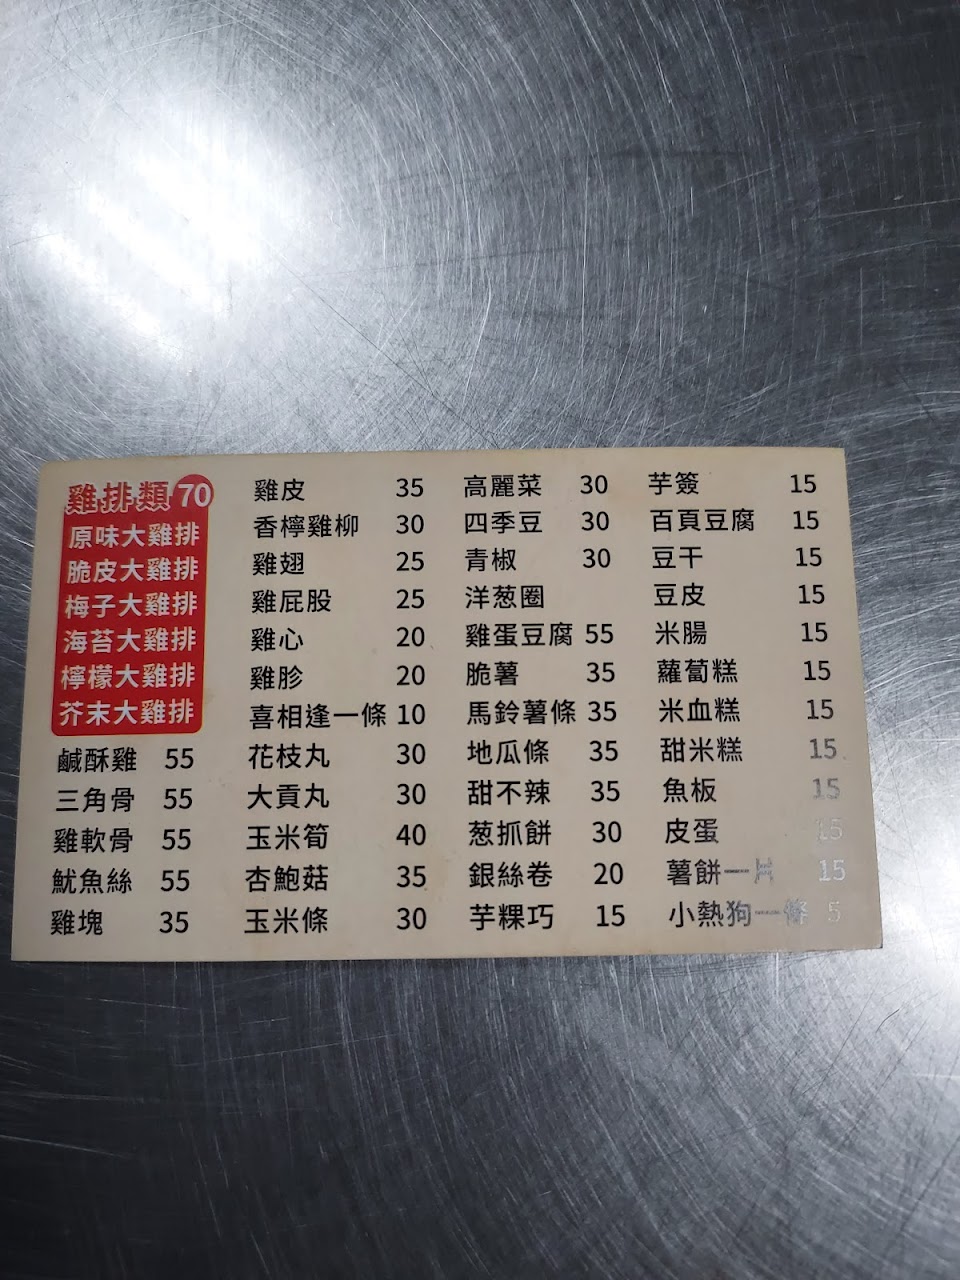 雞排類 70
原味大雞排
脆皮大雞排
梅子大雞排
海苔大雞排
檸檬大雞排
芥末大雞排
鹹酥雞 55
三角骨 55
雞軟骨 55
魷魚絲 55
雞塊 35
雞皮 35
香檸雞柳 30
雞翅 25
雞屁股 25
雞心 20
雞胗 20
喜相逢一條 10
花枝丸 30
大貢丸 30
玉米筍 40
杏鮑菇 35
玉米條 30
高麗菜 30
四季豆 30
青椒 30
洋葱圈
雞蛋豆腐 55
脆薯 35
馬鈴薯條 35
地瓜條 35
甜不辣 35
葱抓餅 30
銀絲卷 20
芋粿巧 15
芋簽 15
百頁豆腐 15
豆干 15
豆皮 15
米腸 15
蘿蔔糕 15
米血糕 15
甜米糕 15
魚板 15
皮蛋 15
薯餅一片 15
小熱狗一條 5